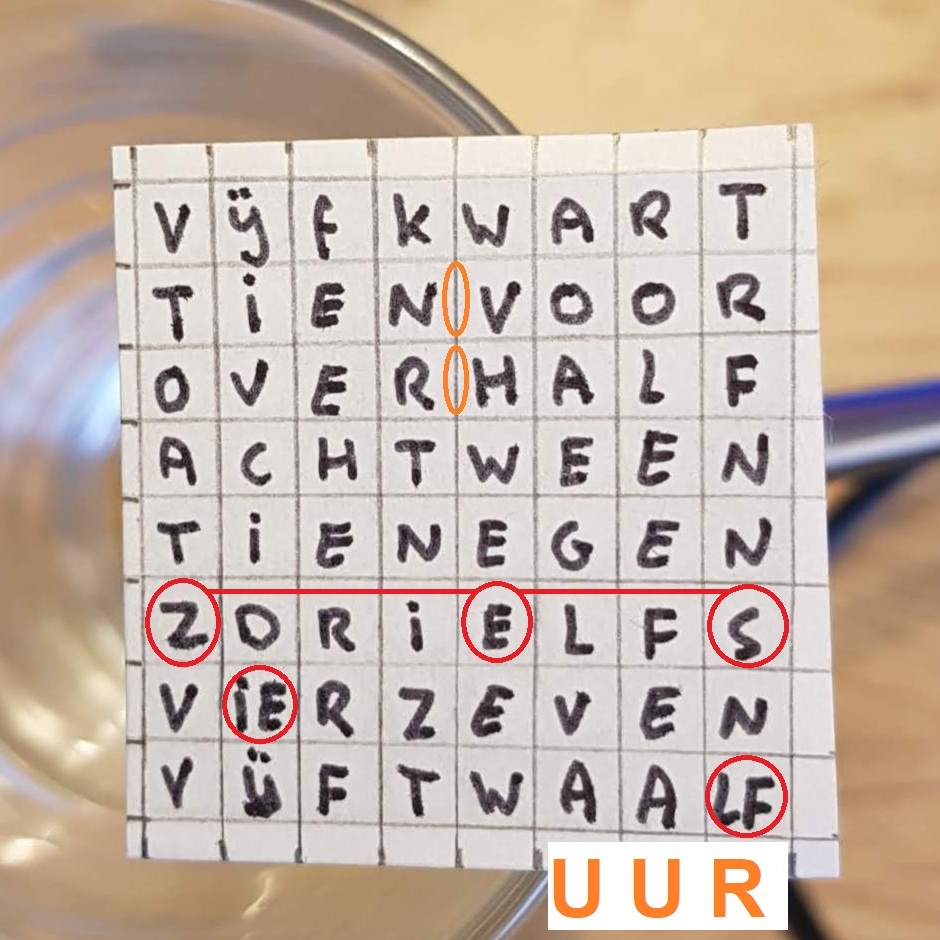 V ÿ F K W A R T
T i E N V O O R
O V E R H A L F
A C H T W E E N
T i E N E G E N
Z D R i E L F S
V iE R Z E V E N
V ÿ F T W A A LF
U U R